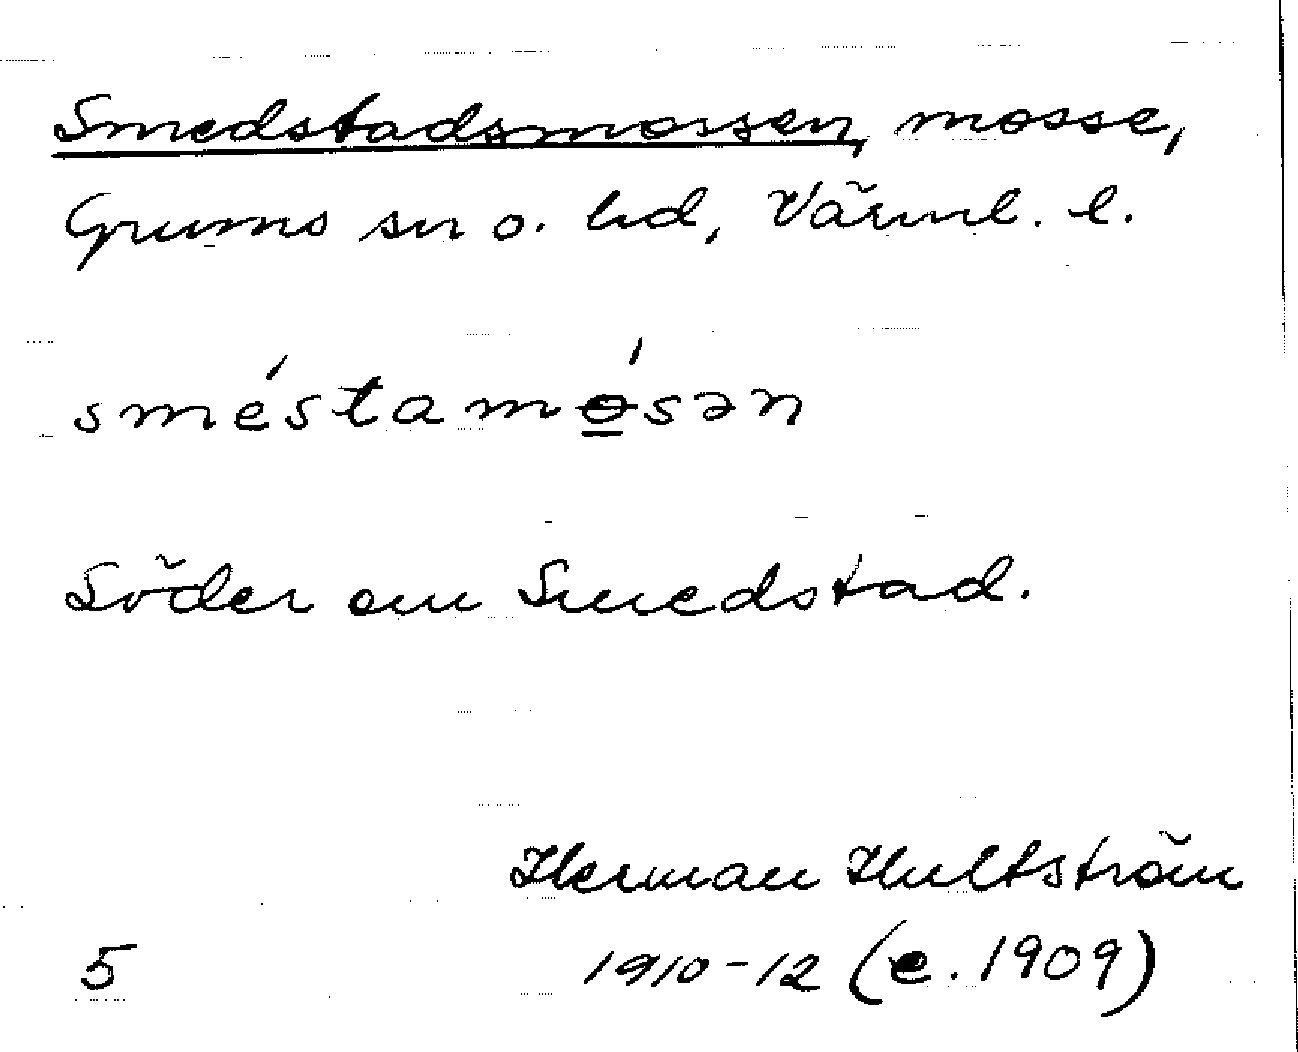 Smedstadsmossen, mosse,
Grums sn o. hd, Värml. l.
sméstamǿsən
Söder om Smedstad.
Herman Hultström
5 1910-12 (e. 1909)